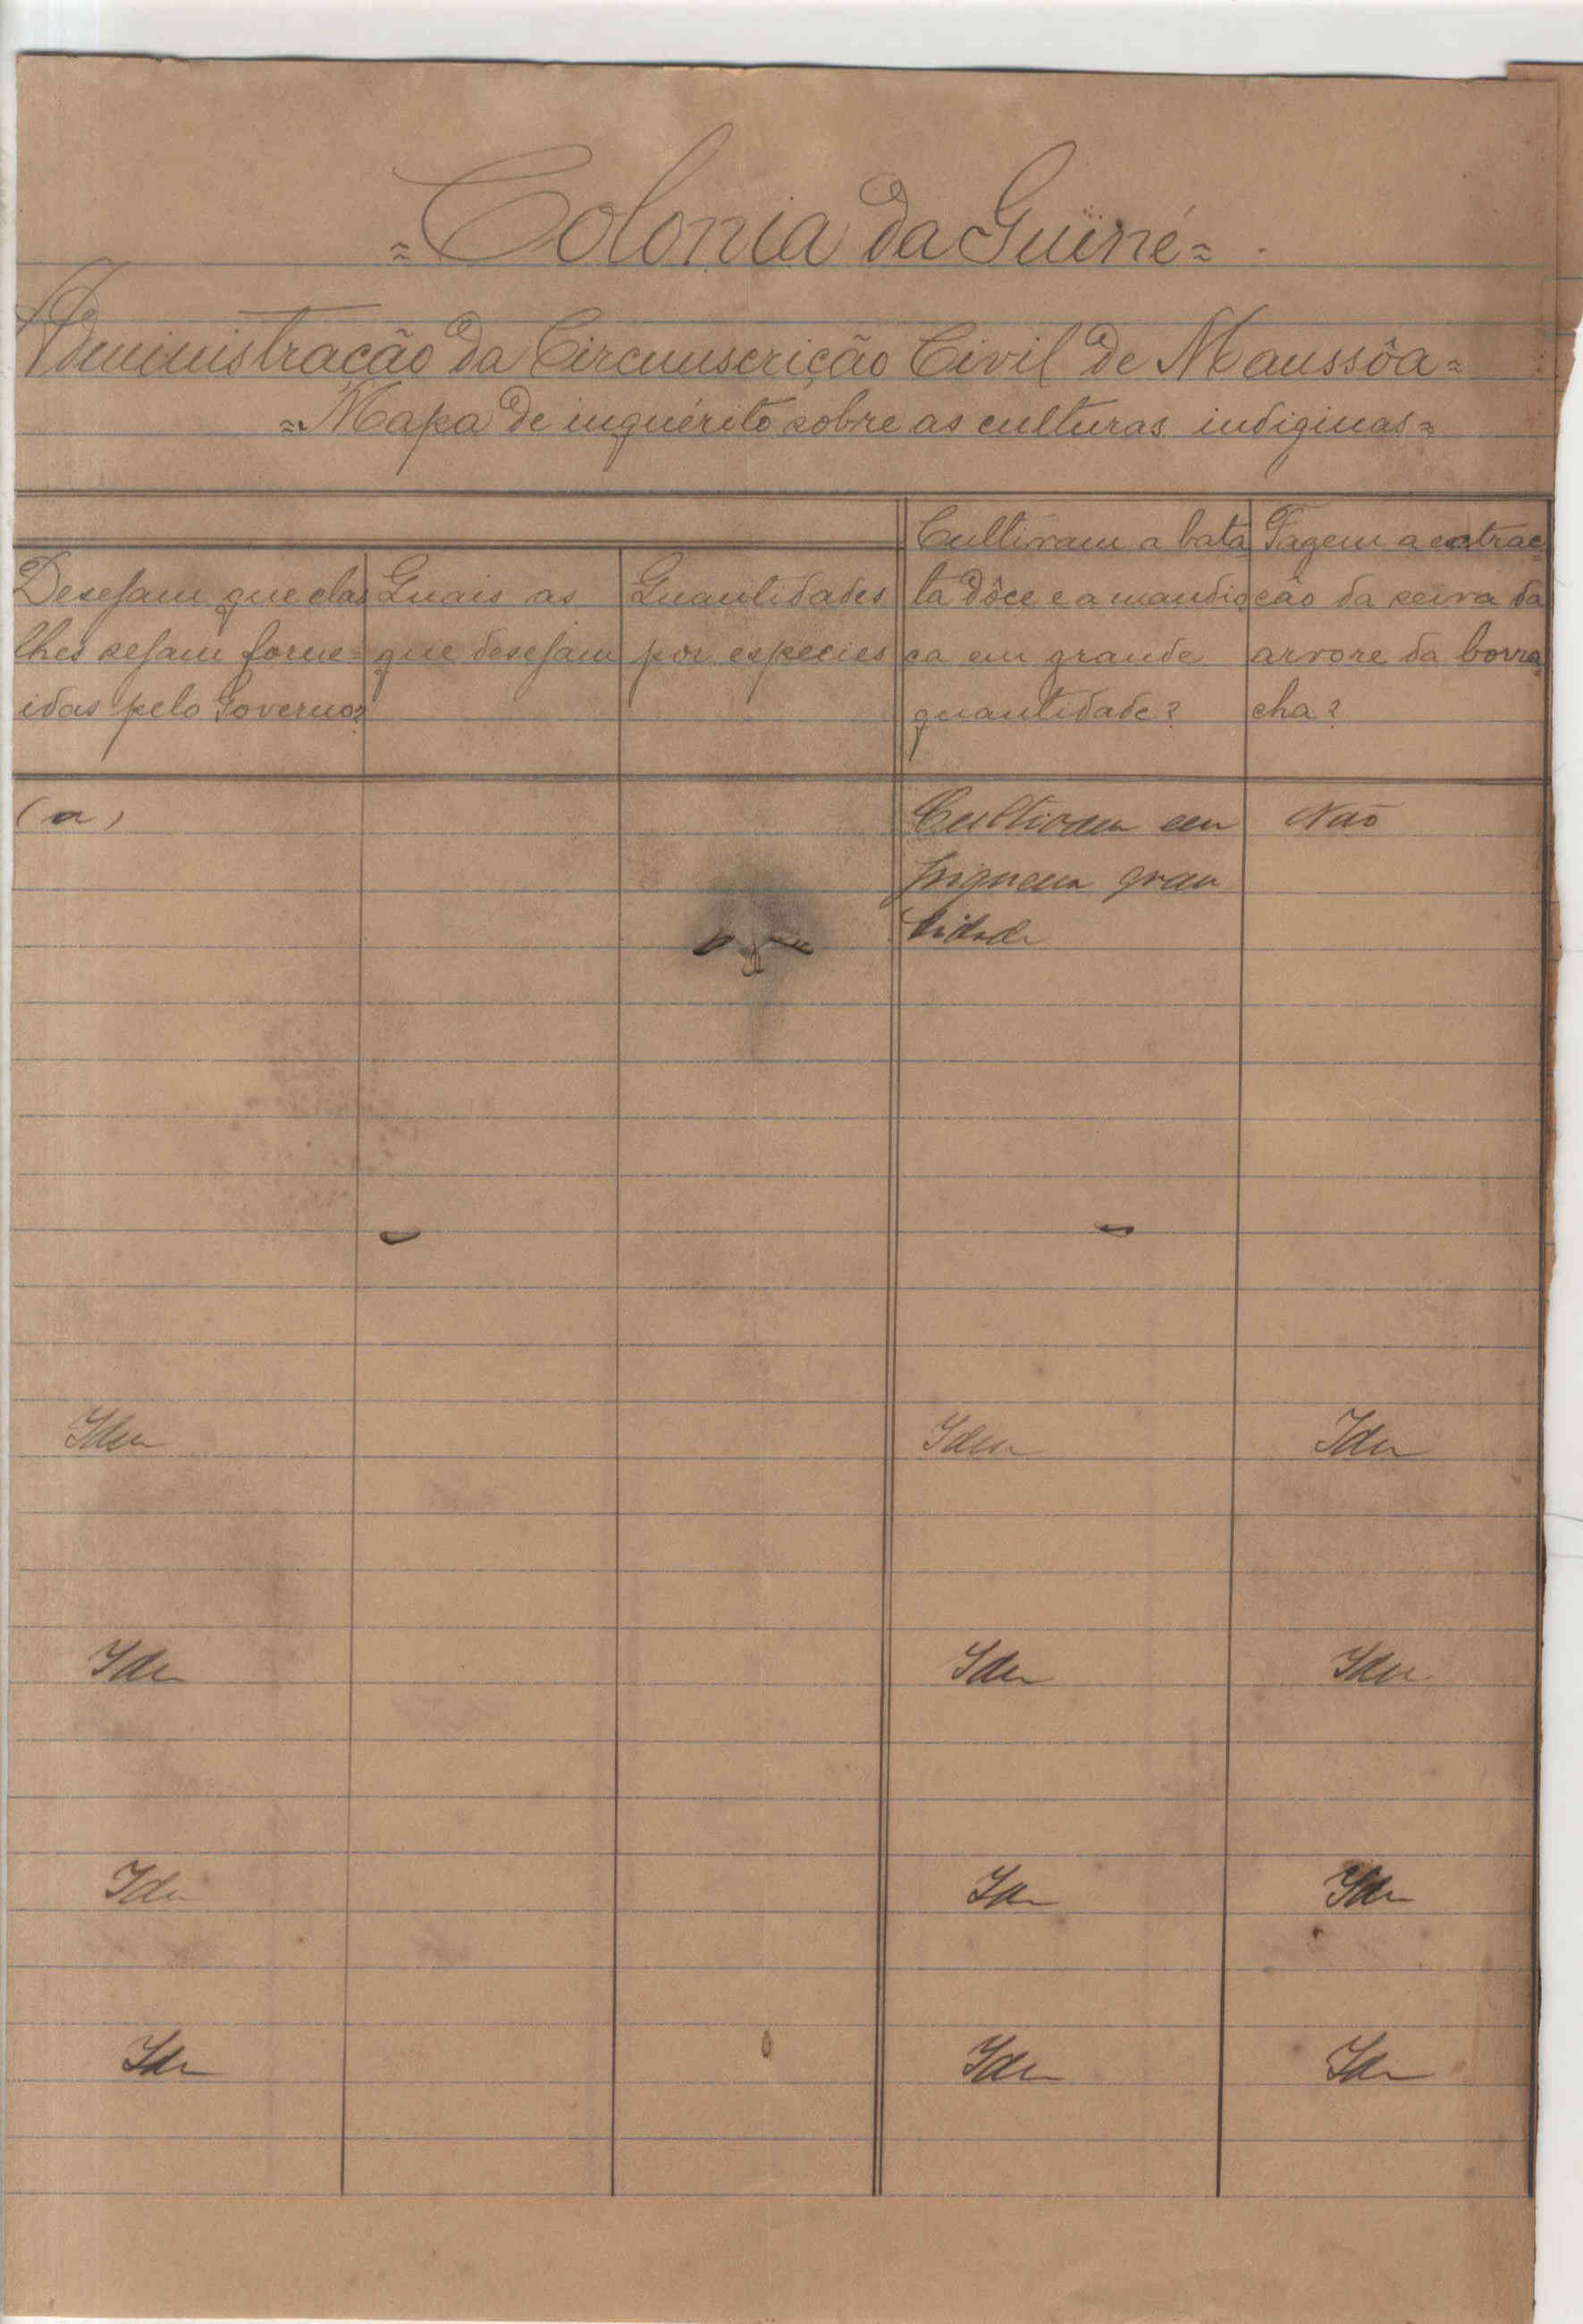 = Colonia da Guiné =
Administracão da Circunscrição Civil de Manssôa =
= Mapa de inquérito sobre as culturas indiginas =
Desejam que elas
lhes sejam forne=
idas pelo Governo?
Quais as
que desejam
Quantidades
por espécies
Cultivam a bata
ta dôce e a mandio
ca em grande
quantidade?
Fazem a extrac=
cão da seiva da
arvore da borra
cha?
(a)
Cultivam em
piquena quan
tidade
Não
Idem
Idem
Idem
Idem
Idem
Idem
Idem
Idem
Idem
Idem
Idem
Idem